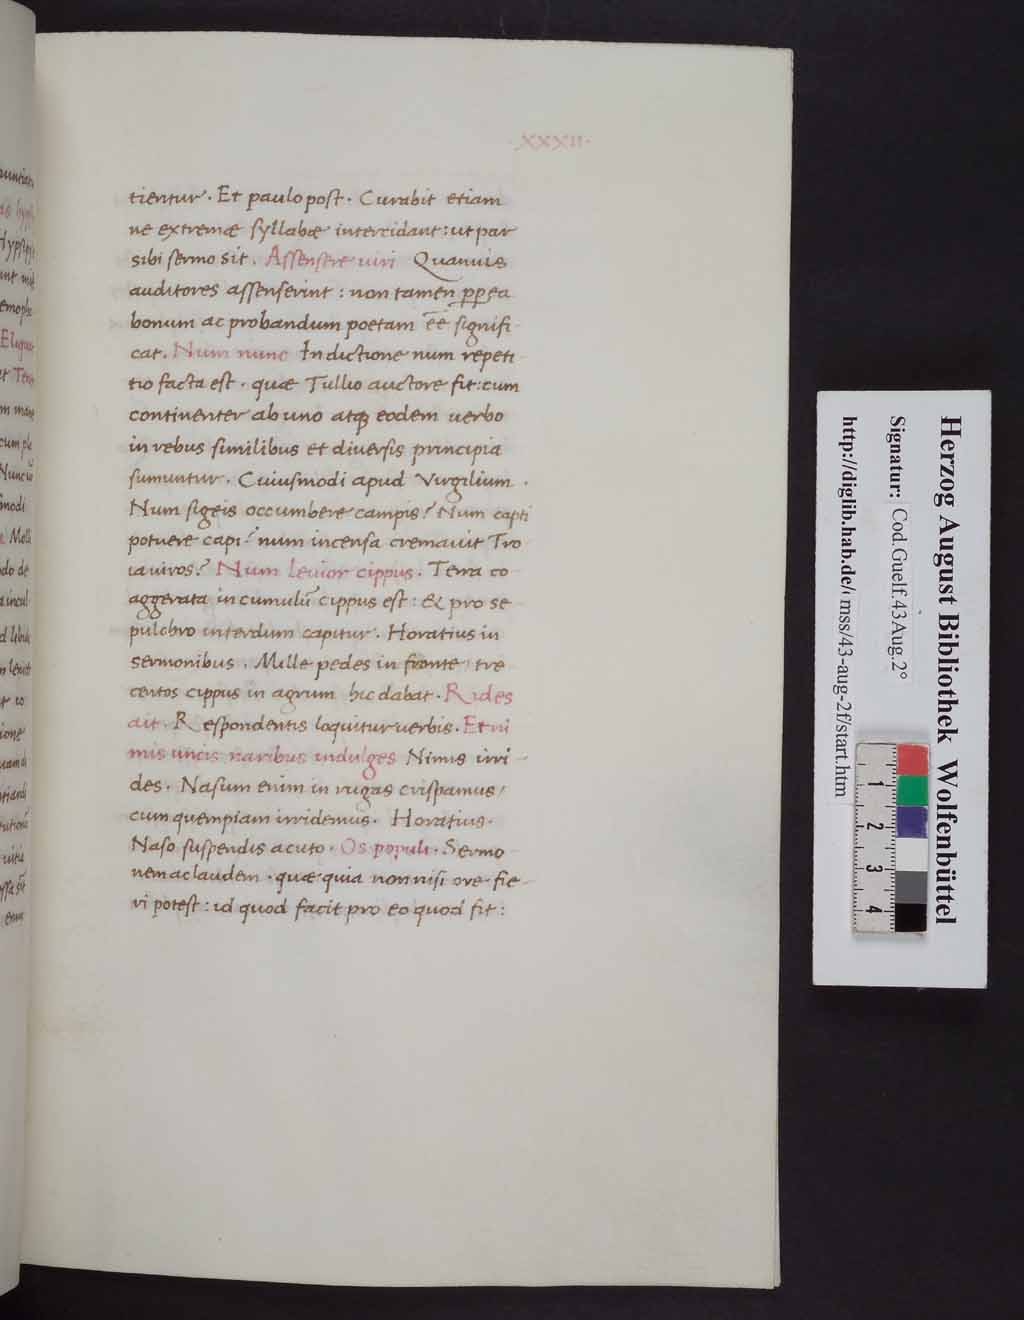 ·XXXII·
tientur. Et paulo post. Curabit etiam
ne extremæ syllabæ intercidant: ut par
sibi sermo sit. Assensere uiri Quamuis
auditores assenserint: non tamen ꝑꝑea
bonum ac probandum poetam e͞e͞ signifi-
cat. Num nunc In dictione num repeti
tio facta est. quæ Tullio auctore fit: cum
continenter ab uno atqꝫ eodem uerbo
in rebus similibus et diuersis principia
sumuntur. Cuiusmodi apud Virgilium.
Num sigeis occumbere campis? Num capti
potuere capi? num incensa cremauit Tro
ia uiros? Num leuior cippus. Terra co
aggerata in cumulū cippus est: Et pro se
pulchro interdum capitur. Horatius in
sermonibus. Mille pedes in fronte tre
centos cippus in agrum hic dabat. Rides
ait. Respondentis loquitur uerbis. Et ni
mis uncis naribus indulges Nimis irri-
des. Nasum enim in rugas crispamus,
cum quempiam irridemus. Horatius.
Naso suspendis acuto. Os populi. Sermo
nem ac laudem. quæ quia non nisi ore fie-
ri potest: id quod facit pro eo quod fit:
Herzog August Bibliothek Wolfenbüttel
Signatur: Cod.Guelf.43 Aug.2°
http://diglib.hab.de/ mss/43-aug-2f/start.htm
1
2
3
4